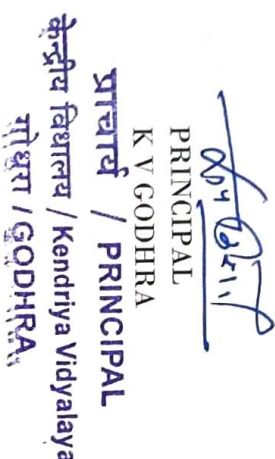 PRINCIPAL
K V GODHRA
प्राचार्य / PRINCIPAL
केन्द्रीय विद्यालय / Kendriya Vidyalaya
गोधरा / GODHRA.